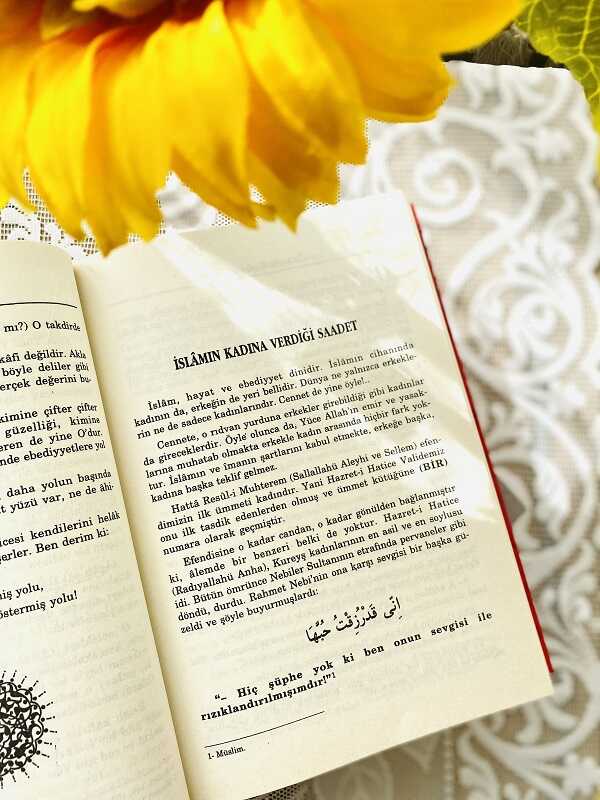 mı?) O takdirde
kâfi değildir. Akla
böyle deliler gibi
erçek değerini bu-
kimine çifter çifter
güzelliği, kimine
eren de yine O'dur.
nde ebediyyetlere yol
daha yolun başında
t yüzü var, ne de âhi-
icesi kendilerini helâk
şerler. Ben derim ki:
niş yolu,
östermiş yolu!
İSLÂMIN KADINA VERDİĞİ SAADET
İslâm, hayat ve ebediyyet dinidir. İslâmın cihanında
kadının da, erkeğin de yeri bellidir. Dünya ne yalnızca erkekle-
rin ne de sadece kadınlarındır. Cennet de yine öyle!..
Cennete, o rıdvan yurduna erkekler girebildiği gibi kadınlar
da gireceklerdir. Öyle olunca da, Yüce Allah'ın emir ve yasak-
larına muhatab olmakta erkekle kadın arasında hiçbir fark yok-
tur. İslâmın ve imanın şartlarını kabul etmekte, erkeğe başka,
kadına başka teklif gelmez.
Hattâ Resûl-i Muhterem (Sallallahü Aleyhi ve Sellem) efen-
dimizin ilk ümmeti kadındır. Yani Hazret-i Hatice Validemiz
onu ilk tasdik edenlerden olmuş ve ümmet kütüğüne (BİR)
numara olarak geçmiştir.
Efendisine o kadar candan, o kadar gönülden bağlanmıştır
ki, âlemde bir benzeri belki de yoktur. Hazret-i Hatice
(Radıyallahü Anha), Kureyş kadınlarının en asil ve en soylusu
idi. Bütün ömrünce Nebiler Sultanının etrafında pervaneler gibi
döndü, durdu. Rahmet Nebi'nin ona karşı sevgisi bir başka gü-
zeldi ve şöyle buyurmuşlardı:
اِنّٖى قَدْ رُزِقْتُ حُبَّهَا
"– Hiç şüphe yok ki ben onun sevgisi ile
rızıklandırılmışımdır!"1
1- Müslim.